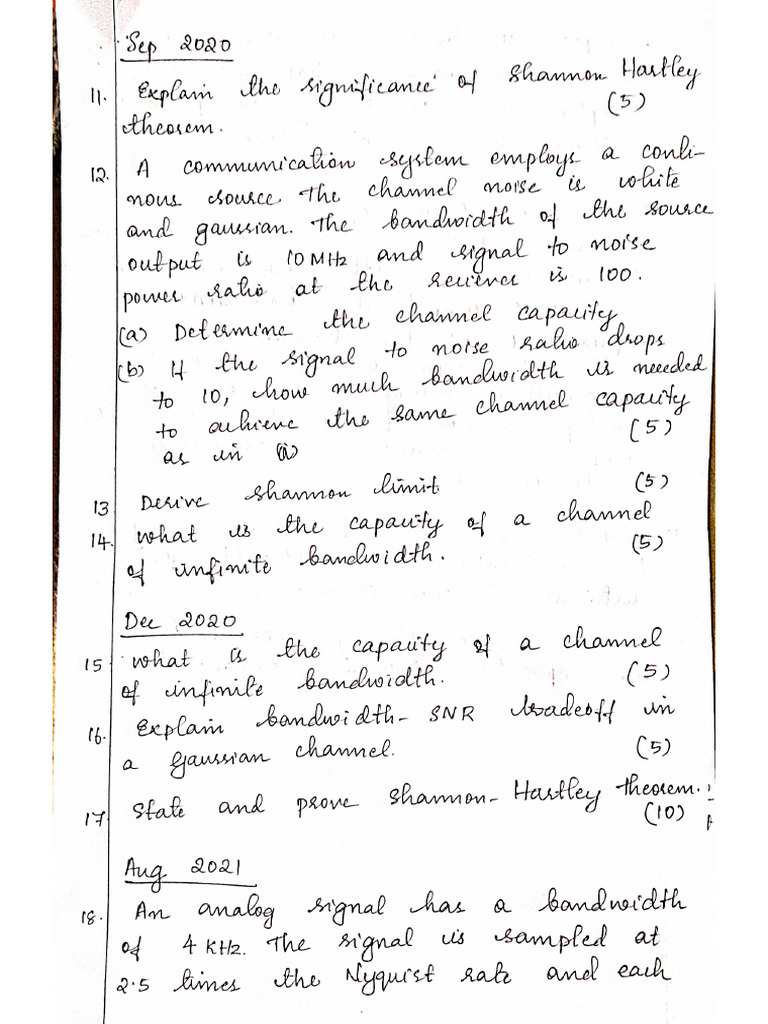 Sep 2020
11. Explain the significance of Shannon Hartley
(5)
theorem.
12. A communication system employs a conti-
nous source. The channel noise is white
and gaussian. The bandwidth of the source
output is 10 MHz and signal to noise
power ratio at the reciever is 100.
(a) Determine the channel capacity
(b) If the signal to noise ratio drops
to 10, how much bandwidth is needed
to achieve the same channel capacity
as in (i) (5)
13 Derive shannon limit (5)
14. What is the capacity of a channel
of infinite bandwidth. (5)
Dec 2020
15 What is the capacity of a channel
of infinite bandwidth. (5)
16. Explain bandwidth- SNR tradeoff in
a gaussian channel. (5)
17. State and prove Shannon-Hartley theorem.
(10)
Aug 2021
18. An analog signal has a bandwidth
of 4 KHz. The signal is sampled at
2.5 times the Nyquist rate and each